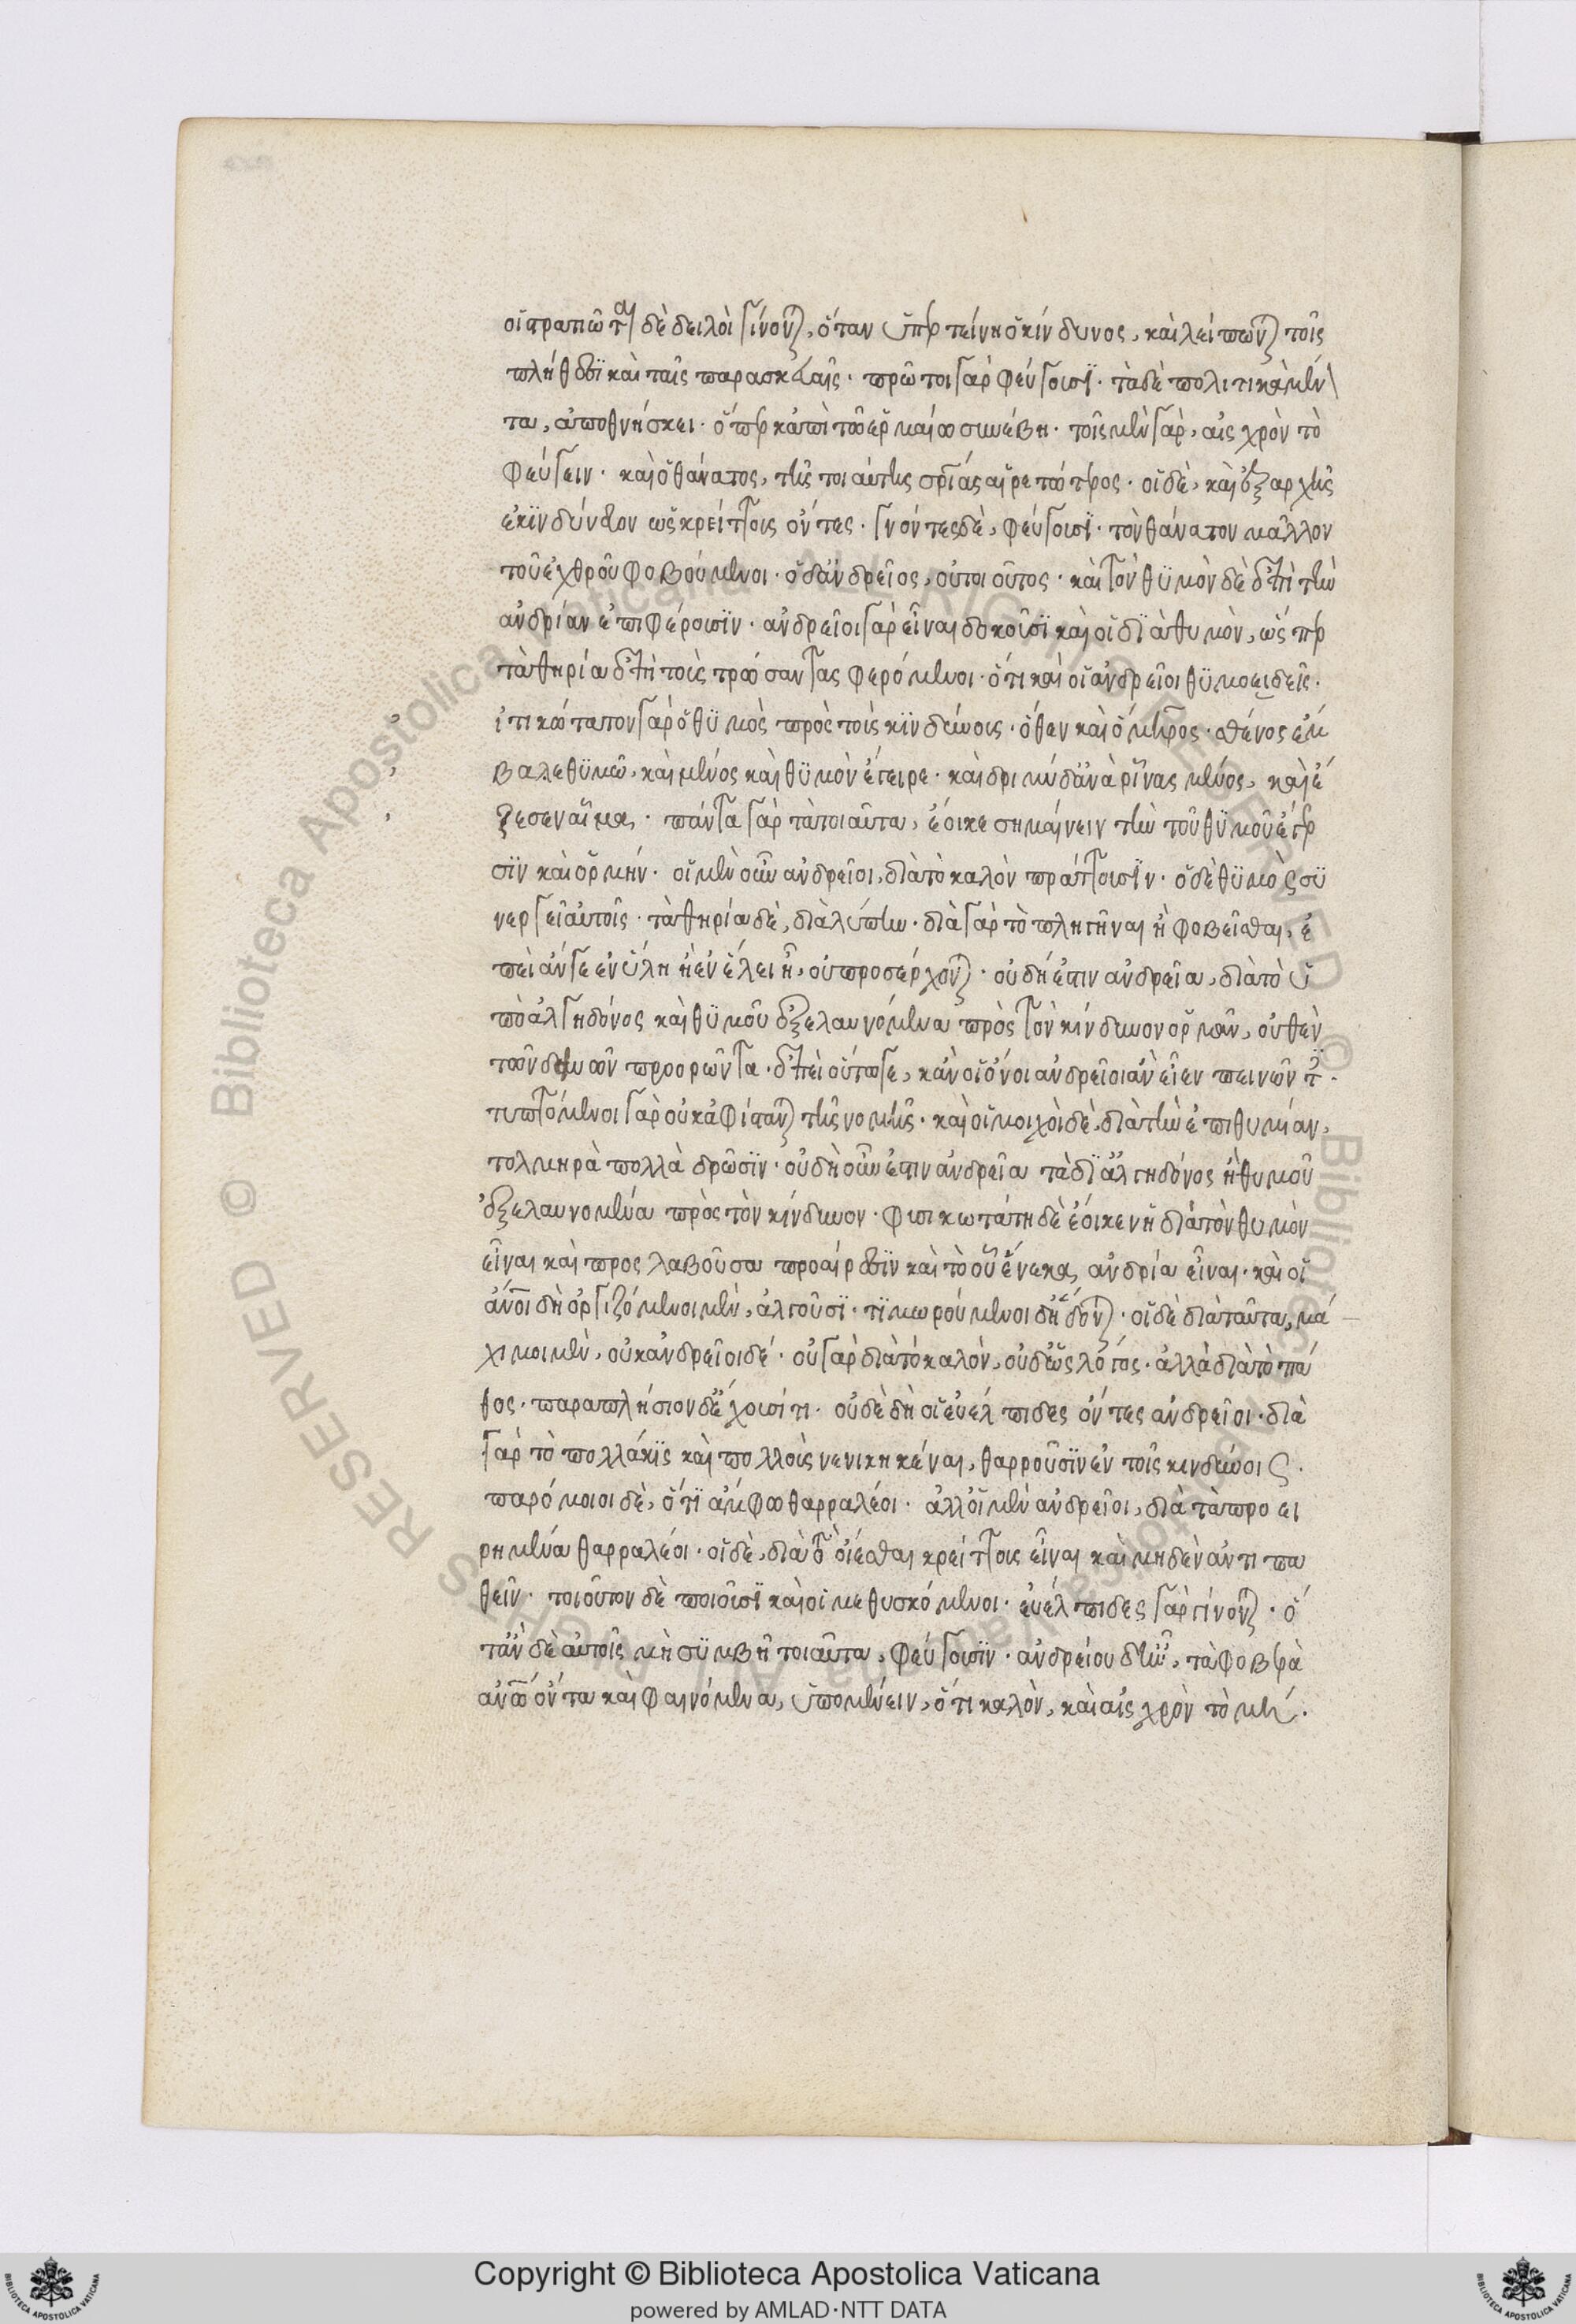 οἱ στρατιῶται δὲ δειλοὶ γίνονται, ὅταν ὑπερτείνη ὁ κίνδυνος, καὶ λείπωνται τοῖς
πλήθεσι καὶ ταῖς παρασκευαῖς· πρῶτοι γὰρ φεύγουσι· τὰ δὲ πολιτικὰ μένον
τα, ἀποθνήσκει· ὅπερ κἀπὶ τῶ ἑρμαίω συνέβη· τοῖς μὲν γὰρ, αἰσχρὸν τὸ
φεύγειν· καὶ ὁ θάνατος, τῆς τοιαύτης σωτηρίας αἱρετώτερος· οἱ δὲ, καὶ ἐξαρχῆς
ἐκινδύνευον ὡς κρείττους ὄντες· γνόντες δὲ, φεύγουσι· τὸν θάνατον μᾶλλον
τοῦ ἐχθροῦ φοβούμενοι· ὁ δ' ἀνδρεῖος, οὐ τοιοῦτος· καὶ τὸν θυμὸν δὲ ἐπὶ τὴν
ἀνδρίαν ἐπιφέρουσιν· ἀνδρεῖοι γὰρ εἶναι δοκοῦσι καὶ οἱ διὰ θυμὸν, ὥσπερ
τὰ θηρία ἐπὶ τοὺς τρώσαντας φερόμενοι· ὅτι καὶ οἱ ἀνδρεῖοι θυμοειδεῖς·
ἰτικώτατον γὰρ ὁ θυμὸς πρὸς τοὺς κινδύνους· ὅθεν καὶ ὅμηρος· σθένος ἔμ
βαλε θυμῶ, καὶ μένος καὶ θυμὸν ἔγειρε· καὶ δριμὺ δ' ἀνὰ ρῖνας μένος, καὶ ἔ
ζεσεν αἷμα· πάντα γὰρ τὰ τοιαῦτα, ἔοικε σημαίνειν τὴν τοῦ θυμοῦ ἔγερ
σιν καὶ ὁρμήν· οἱ μὲν οὖν ἀνδρεῖοι, διὰ τὸ καλὸν πράττουσιν· ὁ δὲ θυμὸς συ
νεργεῖ αὐτοῖς· τὰ θηρία δὲ, διὰ λύπην· διὰ γὰρ τὸ πληγῆναι ἢ φοβεῖσθαι, ἐ
πεὶ ἄν γε ἐν ὕλη ἢ ἐν ἕλει ἦ, οὐ προσέρχονται· οὐ δή ἐστιν ἀνδρεῖα, διὰ τὸ ὑ
πὸ ἀλγηδόνος καὶ θυμοῦ ἐξελαυνόμενα πρὸς τὸν κίνδυνον ὁρμᾶν, οὐθὲν
τῶν δεινῶν προορῶντα· ἐπεὶ οὕτω γε, κἂν οἱ ὄνοι ἀνδρεῖοι ἂν εἶεν πεινῶντες·
τυπτόμενοι γὰρ οὐκ ἀφίστανται τῆς νομῆς· καὶ οἱ μοιχοὶ δὲ, διὰ τὴν ἐπιθυμίαν,
τολμηρὰ πολλὰ δρῶσιν· οὐ δὴ οὖν ἐστιν ἀνδρεῖα τὰ δι' ἀλγηδόνος ἢ θυμοῦ
ἐξελαυνομένα πρὸς τὸν κίνδυνον· φυσικωτάτη δὲ ἔοικεν ἡ διὰ τὸν θυμὸν
εἶναι καὶ προσλαβοῦσα προαίρεσιν καὶ τὸ οὗ ἕνεκα, ἀνδρία εἶναι· καὶ οἱ
ἄνθρωποι δὴ ὀργιζόμενοι μὲν, ἀλγοῦσι· τιμωρούμενοι δ' ἥδονται· οἱ δὲ διὰ ταῦτα, μά
χιμοι μὲν, οὐκ ἀνδρεῖοι δέ· οὐ γὰρ διὰ τὸ καλὸν, οὐδ' ὡς λόγος· ἀλλὰ διὰ τὸ πά
θος· παραπλήσιον δ' ἔχουσί τι· οὐδὲ δὴ οἱ εὐέλπιδες ὄντες ἀνδρεῖοι· διὰ
γὰρ τὸ πολλάκις καὶ πολλοὺς νενικηκέναι, θαρροῦσιν ἐν τοῖς κινδύνοις·
παρόμοιοι δὲ, ὅτι ἄμφω θαρραλέοι· ἀλλ' οἱ μὲν ἀνδρεῖοι, διὰ τὰ προει
ρημένα θαρραλέοι· οἱ δὲ, διὰ τὸ οἴεσθαι κρείττους εἶναι καὶ μηδὲν ἀντιπα
θεῖν· τοιοῦτον δὲ ποιοῦσι καὶ οἱ μεθυσκόμενοι· εὐέλπιδες γὰρ γίνονται· ὅ
ταν δὲ αὐτοῖς μὴ συμβῆ τοιαῦτα, φεύγουσιν· ἀνδρείου δ' ἦν, τὰ φοβερὰ
ἀνθρώπω ὄντα καὶ φαινόμενα, ὑπομένειν, ὅτι καλὸν, καὶ αἰσχρὸν τὸ μή·
Copyright © Biblioteca Apostolica Vaticana
powered by AMLAD·NTT DATA